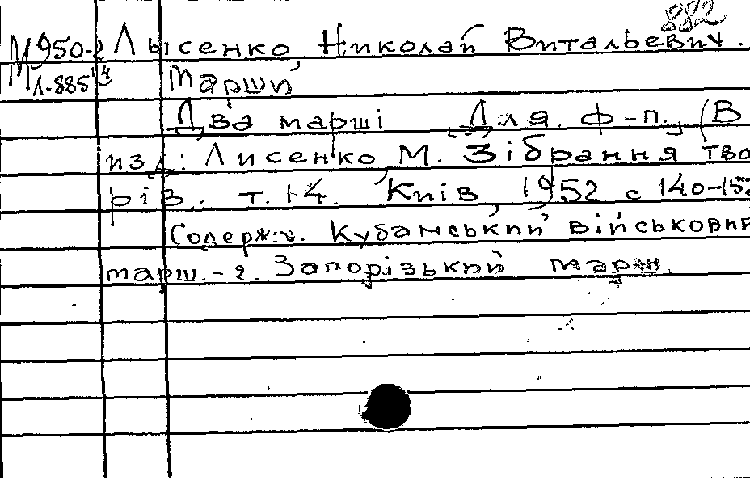 882
М950-2 Лысенко, Николай Витальевич.
М Л-885 Марши
Два марші Для ф-п. (В
изд: Лисенко, М. Зібрання тво
рів. т. 14. Київ, 1952 с 140-152
Содерж: Кубанський військовий
марш. - 2. Запорізький марш.